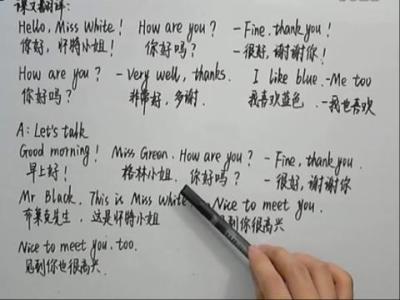 课文翻译:
Hello, Miss White! How are you? - Fine, thank you!
你好, 怀特小姐! 你好吗? - 很好, 谢谢你!
How are you? - Very well, thanks. I like blue. - Me too
你好吗? 非常好, 多谢. 我喜欢蓝色. - 我也喜欢
A: Let's talk
Good morning! Miss Green. How are you? - Fine, thank you.
早上好! 格林小姐. 你好吗? - 很好, 谢谢你
Mr Black, This is Miss White. Nice to meet you.
布莱克先生, 这是怀特小姐 见到你很高兴
Nice to meet you, too.
见到你也很高兴.